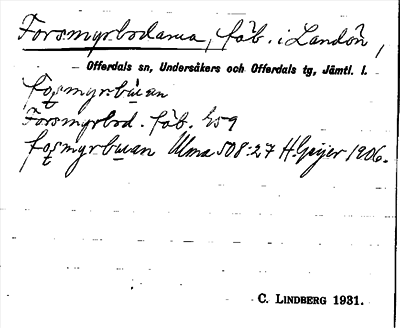 Forsmyrbodarna, fäb. i Landön,
Offerdals sn, Undersåkers och Offerdals tg, Jämtl. l.
foşmyrbùan
Forsmyrbod. fäb. 259
foşmyrbùan Ulma 508:27 H. Geijer 1906.
C. LINDBERG 1931.